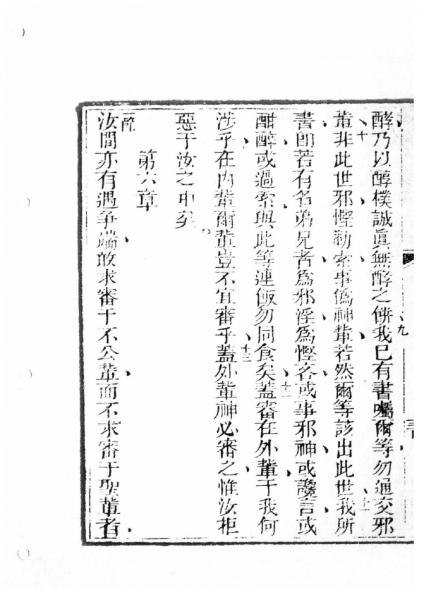 酵乃以醇樸誠眞無酵之餅我已有書囑爾等勿通交邪
輩非此世邪慳勒索事僞神輩若然爾等該出此世我所
書卽若有名弟兄者爲邪淫爲慳吝或事邪神或讒言或
酣醉或過索與此等連飯勿同食矣蓋審在外輩干我何
涉乎在內輩爾輩豈不宜審乎蓋外輩神必審之惟汝拒
惡于汝之中矣
第六章
汝間亦有遇爭端敢求審于不公輩而不求審于聖輩者